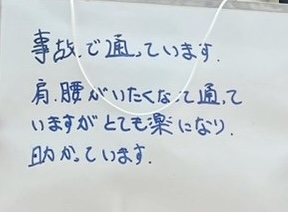 事故で通っています.
肩.腰がいたくなって通って
いますがとても楽になり.
助かっています.